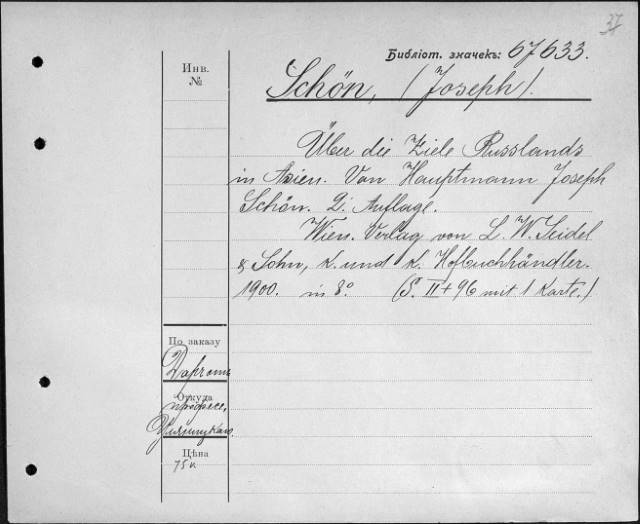 37
Библіот. значекъ: 67633.
Инв.
№
Schön, (Joseph).
Über die Ziele Russlands
in Asien. Von Hauptmann Joseph
Schön. 2. Auflage.
Wien. Verlag von L. W. Seidel
& Sohn, k. und k. Hofbuchhändler.
1900. in 8° (S. II + 96 mit 1 Karte.)
По заказу
Даръ отъ
Откуда
професс.
Цѣна
75 к.